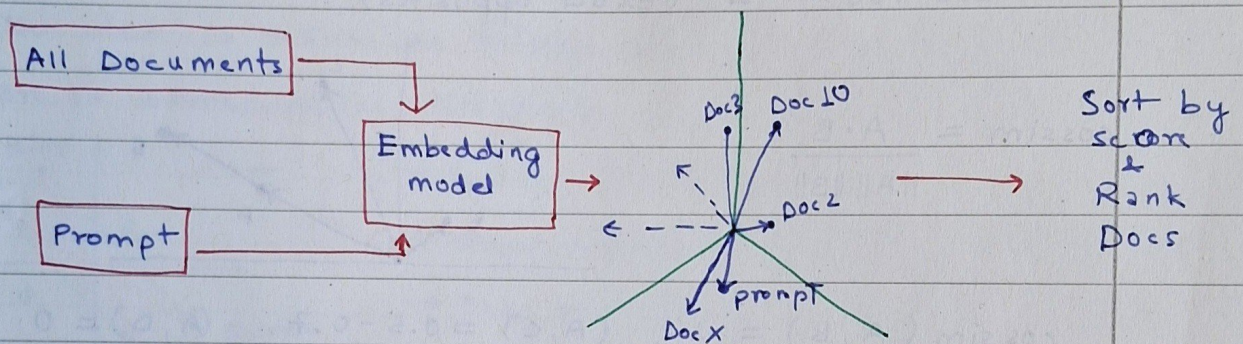 All Documents
Embedding
model
Prompt
Doc3
Doc 10
Doc2
prompt
Doc X
Sort by
score
&
Rank
Docs